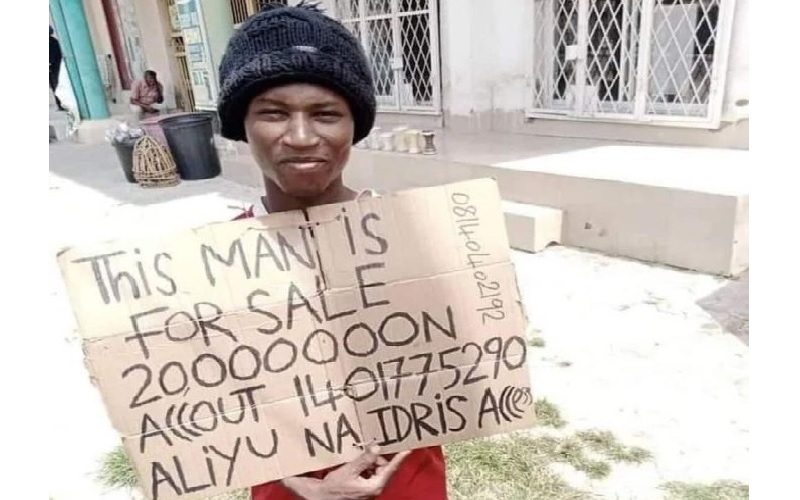 THis MAN iS
FOR SALE
20000000N
ACCOUT 1401775290
ALiYU NA IDRiS Access
08140402192